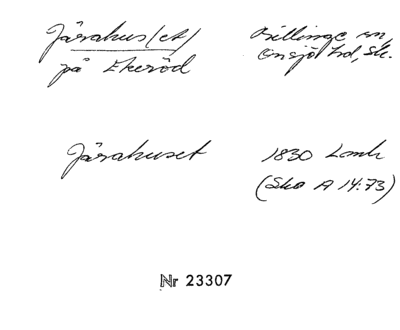 Järahus(et)
på Ekeröd
Billinge sn,
Onsjö hd, Sk.
Järahuset
1830 Lantm
(Ska A 14:73)
Nr 23307